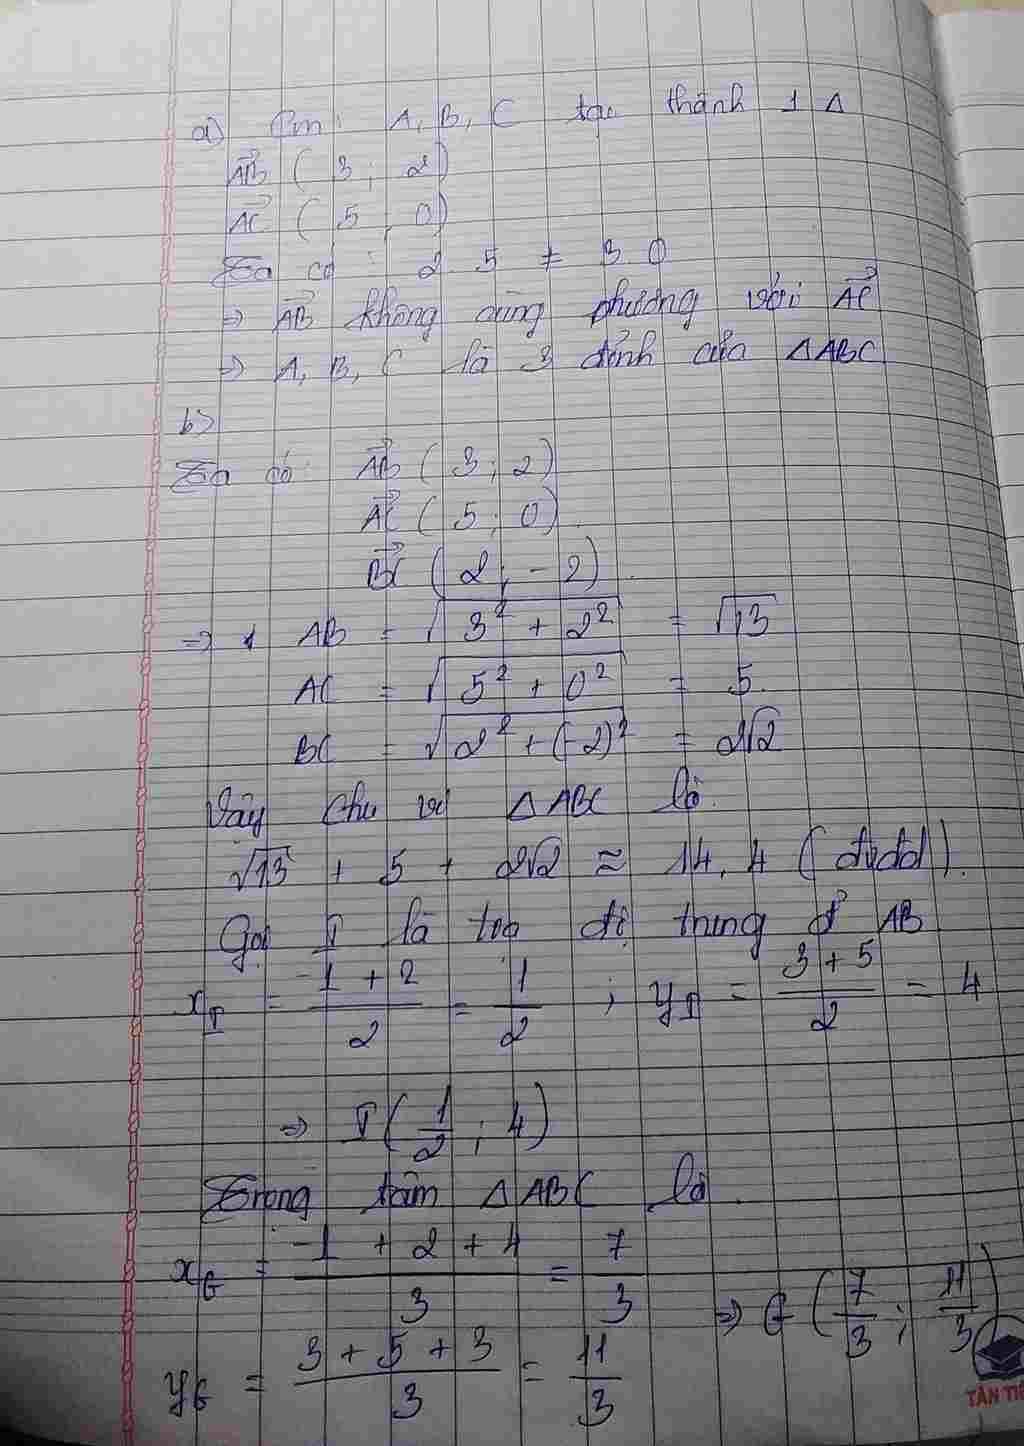 a) Cm: A, B, C tạo thành 1 Δ
AB→ ( 3 ; 2)
AC→ ( 5 ; 0)
Ta có : 2.5 ≠ 3.0
⇒ AB→ không cùng phương với AC→
⇒ A, B, C là 3 đỉnh của ΔABC
b)
Ta có: AB→ ( 3 ; 2)
AC→ ( 5 ; 0)
BC→ ( 2 ; -2)
⇒ AB = √(3² + 2²) = √13
AC = √(5² + 0²) = 5
BC = √(2² + (-2)²) = 2√2
Vậy chu vi ΔABC là
√13 + 5 + 2√2 ≈ 14,4 (đvđd).
Gọi I là tọa độ trung đ' AB
x_I = (-1 + 2)/2 = 1/2 ; y_I = (3 + 5)/2 = 4
⇒ I(1/2 ; 4)
Trọng tâm ΔABC là
x_G = (-1 + 2 + 4)/3 = 7/3
⇒ G (7/3 ; 11/3)
y_G = (3 + 5 + 3)/3 = 11/3